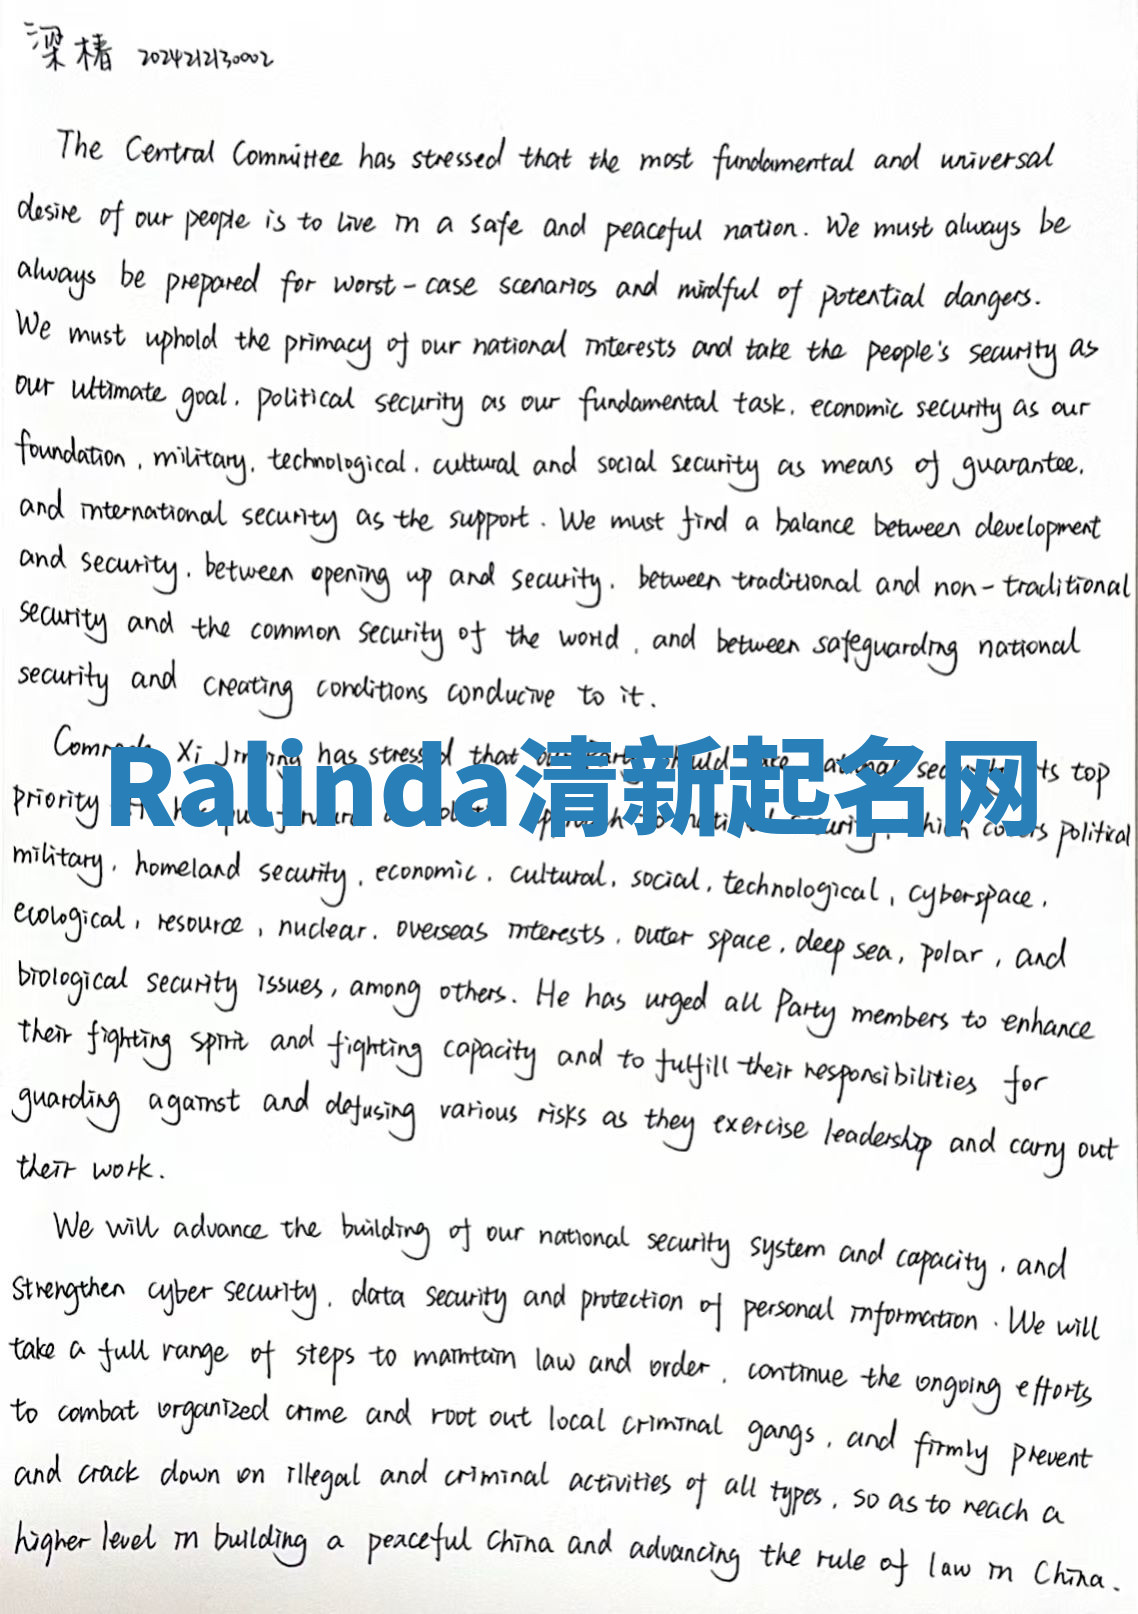 梁椿 2024212130002
The Central Committee has stressed that the most fundamental and universal
desire of our people is to live in a safe and peaceful nation. We must always be
always be prepared for worst-case scenarios and mindful of potential dangers.
We must uphold the primacy of our national interests and take the people's security as
our ultimate goal, political security as our fundamental task, economic security as our
foundation, military, technological, cultural and social security as means of guarantee,
and international security as the support. We must find a balance between development
and security, between opening up and security, between traditional and non-traditional
security and the common security of the world, and between safeguarding national
security and creating conditions conducive to it.
Comrade Xi Jinping has stressed that our Party should national security its top
Ralinda清新起名网
priority political
military, homeland security, economic, cultural, social, technological, cyberspace,
ecological, resource, nuclear, overseas interests, outer space, deep sea, polar, and
biological security issues, among others. He has urged all Party members to enhance
their fighting spirit and fighting capacity and to fulfill their responsibilities for
guarding against and defusing various risks as they exercise leadership and carry out
their work.
We will advance the building of our national security system and capacity, and
strengthen cyber security, data security and protection of personal information. We will
take a full range of steps to maintain law and order, continue the ongoing efforts
to combat organized crime and root out local criminal gangs, and firmly prevent
and crack down on illegal and criminal activities of all types, so as to reach a
higher level in building a peaceful China and advancing the rule of law in China.